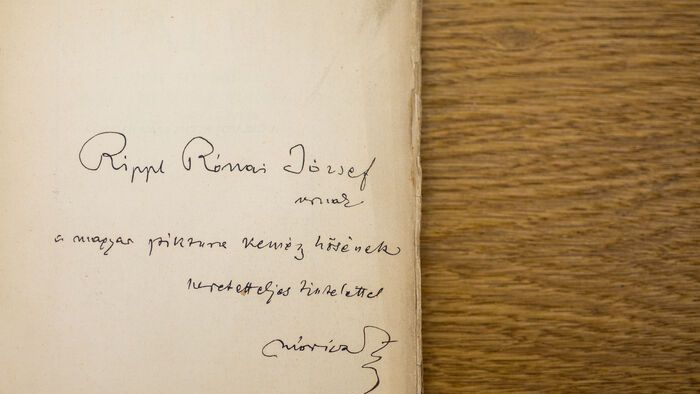 Rippl Rónai József
urnak
a magyar piktura keméŋ hősének
szeretetteljes tisztelettel
Móricz Zs